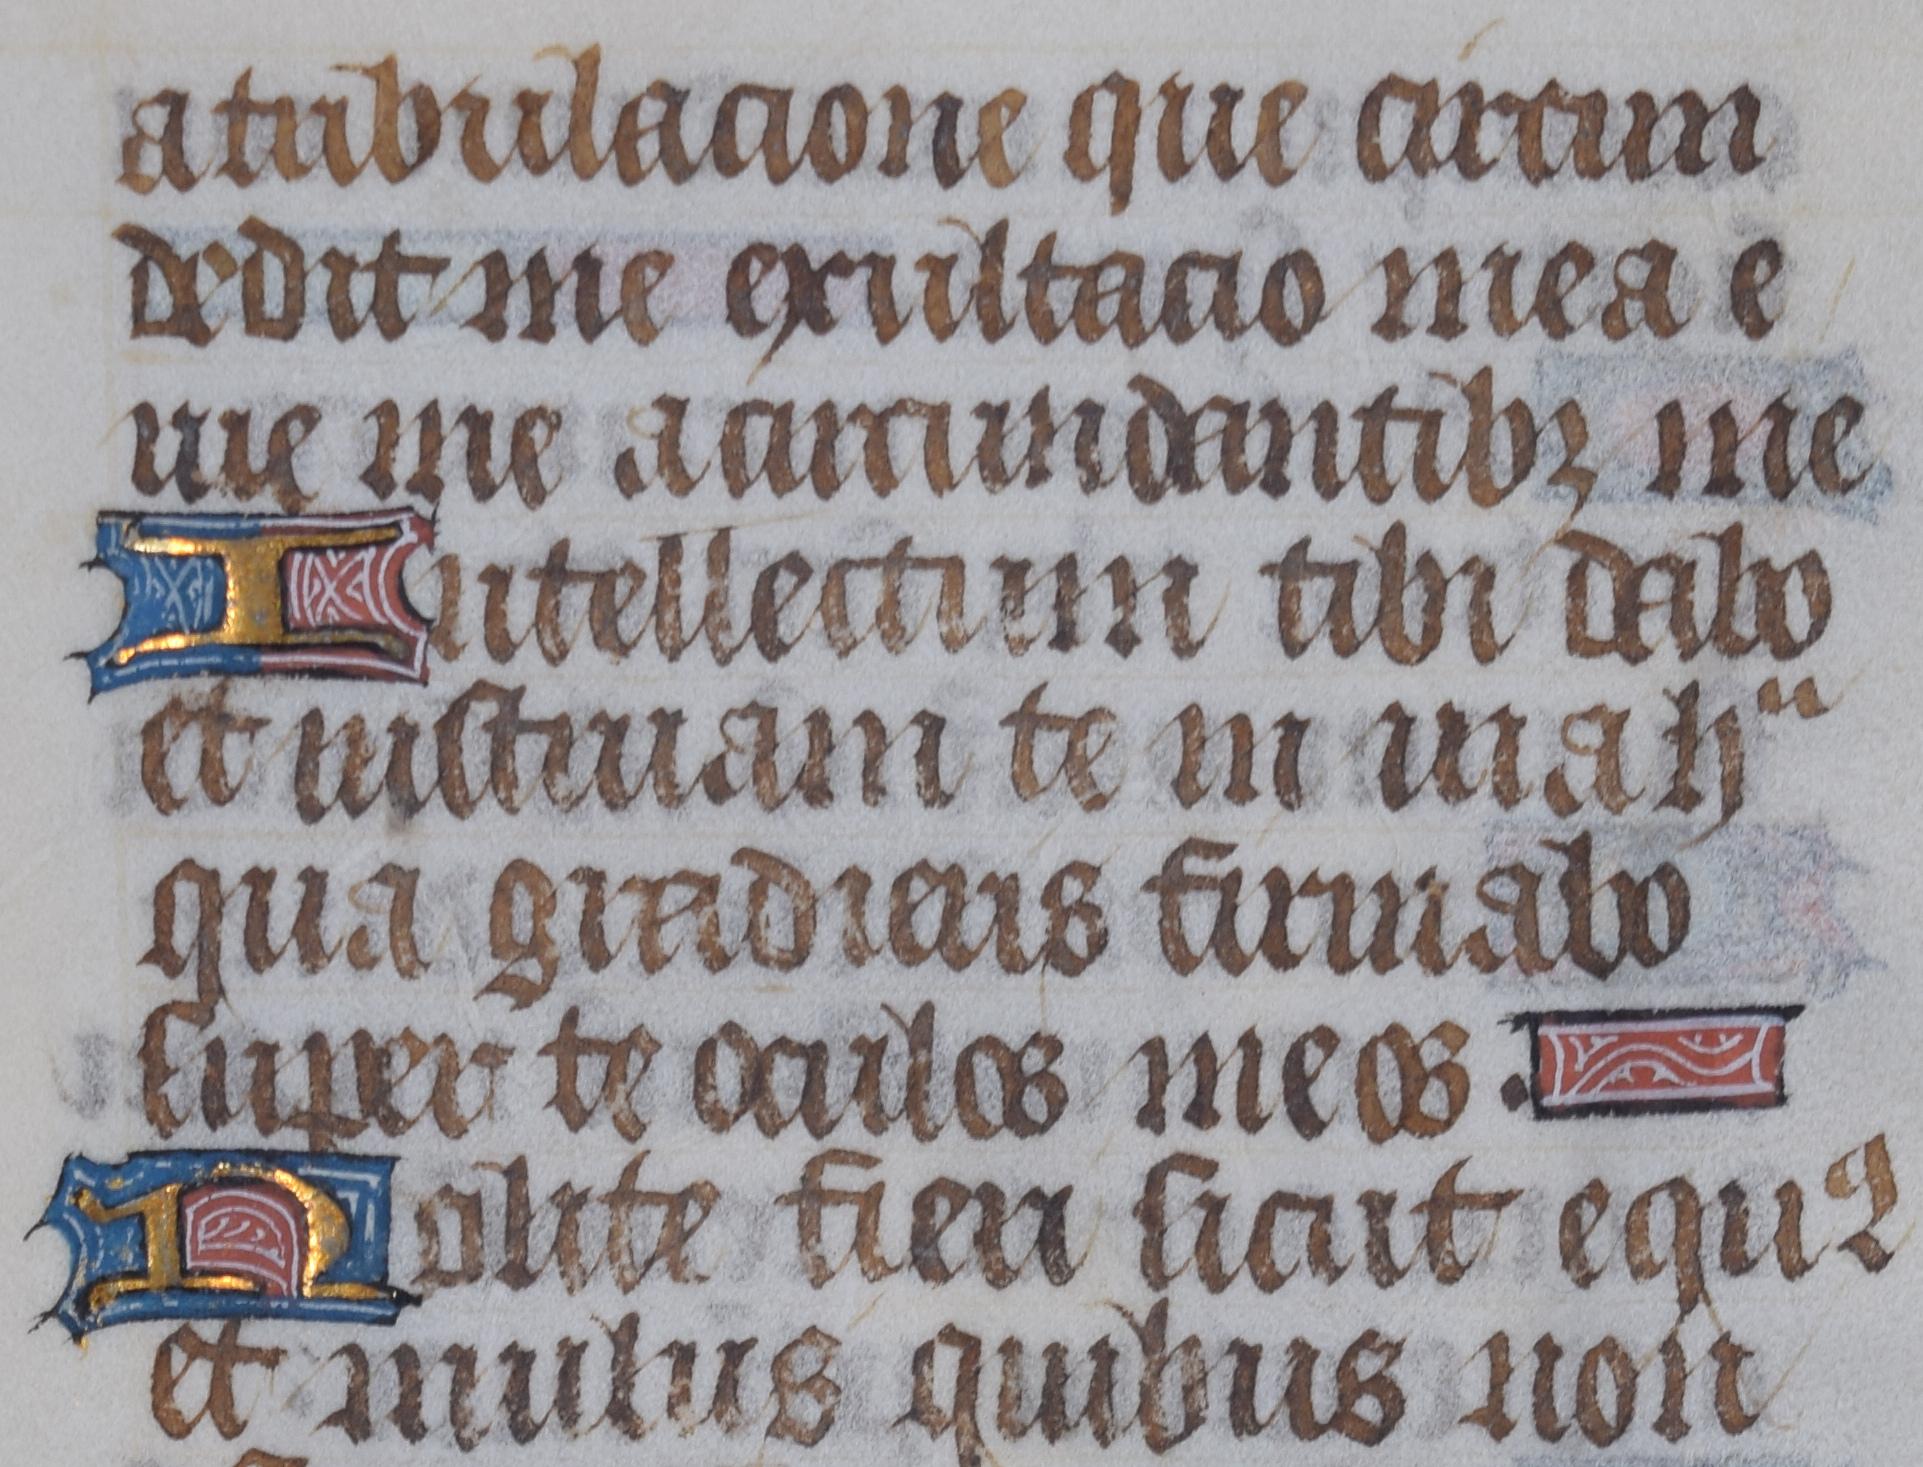 a tribulacione que circum
dedit me exultacio mea e
rue me a circumdantibꝫ me
Intellectum tibi dabo
et instruam te in uia hac
qua gradieris firmabo
super te oculos meos .
Nolite fieri sicut equꝰ
et mulus quibus non